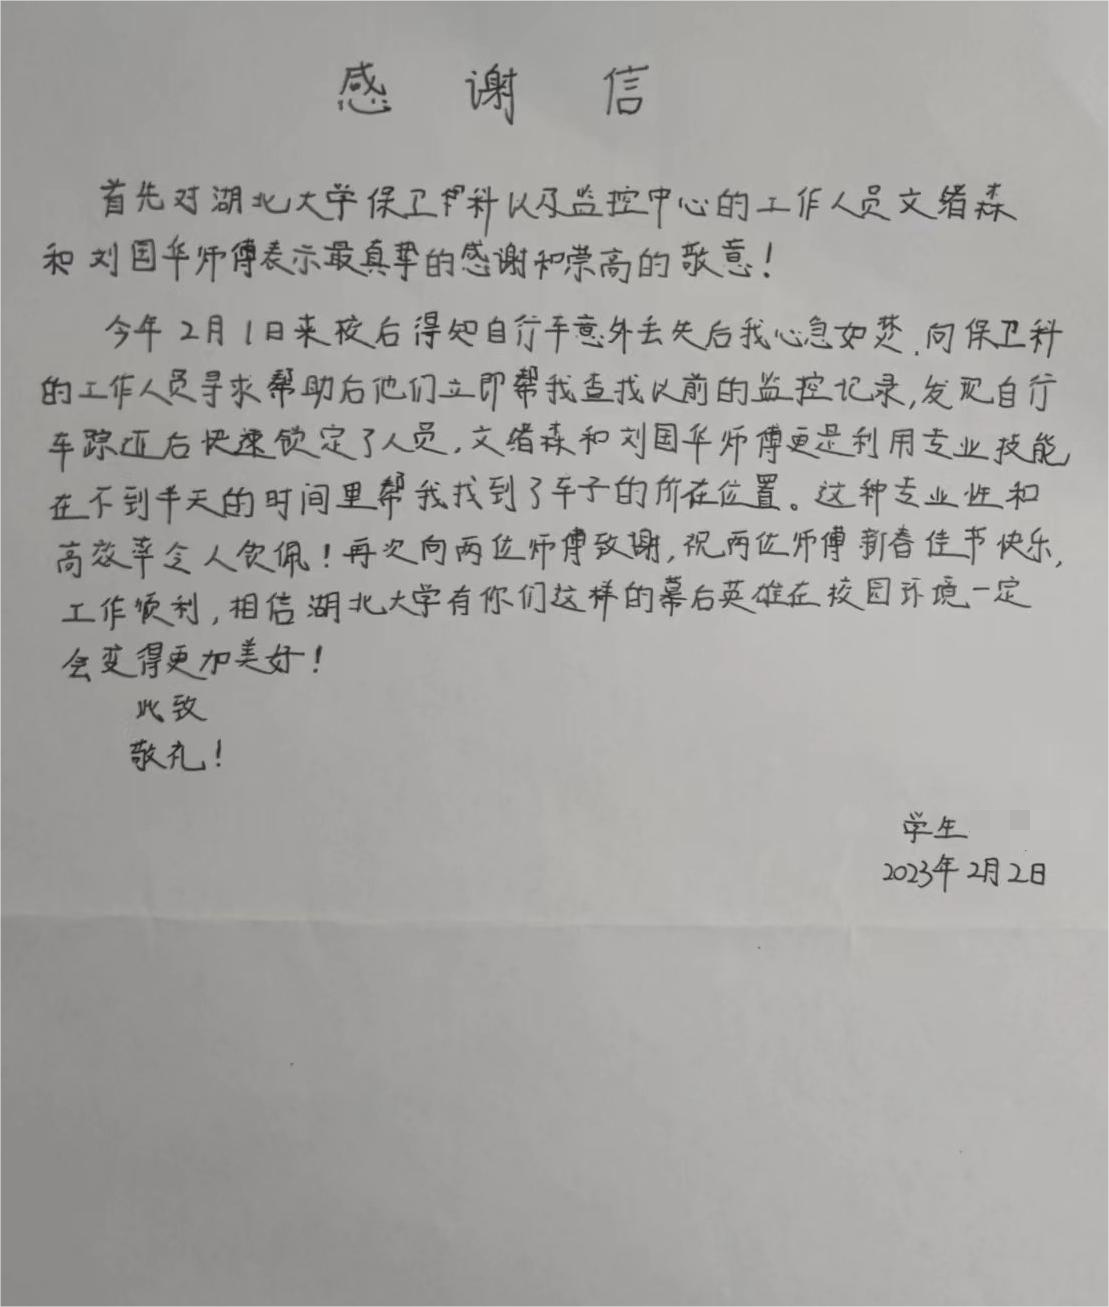 感谢信
首先对湖北大学保卫科以及监控中心的工作人员文绪森
和刘国华师傅表示最真挚的感谢和崇高的敬意!
今年2月1日来校后得知自行车意外丢失后我心急如焚,向保卫科
的工作人员寻求帮助后他们立即帮我查找以前的监控记录,发现自行
车踪迹后快速锁定了人员,文绪森和刘国华师傅更是利用专业技能
在不到半天的时间里帮我找到了车子的所在位置。这种专业性和
高效率令人钦佩!再次向两位师傅致谢,祝两位师傅新春佳节快乐,
工作顺利,相信湖北大学有你们这样的幕后英雄在校园环境一定
会变得更加美好!
此致
敬礼!
学生
2023年2月2日